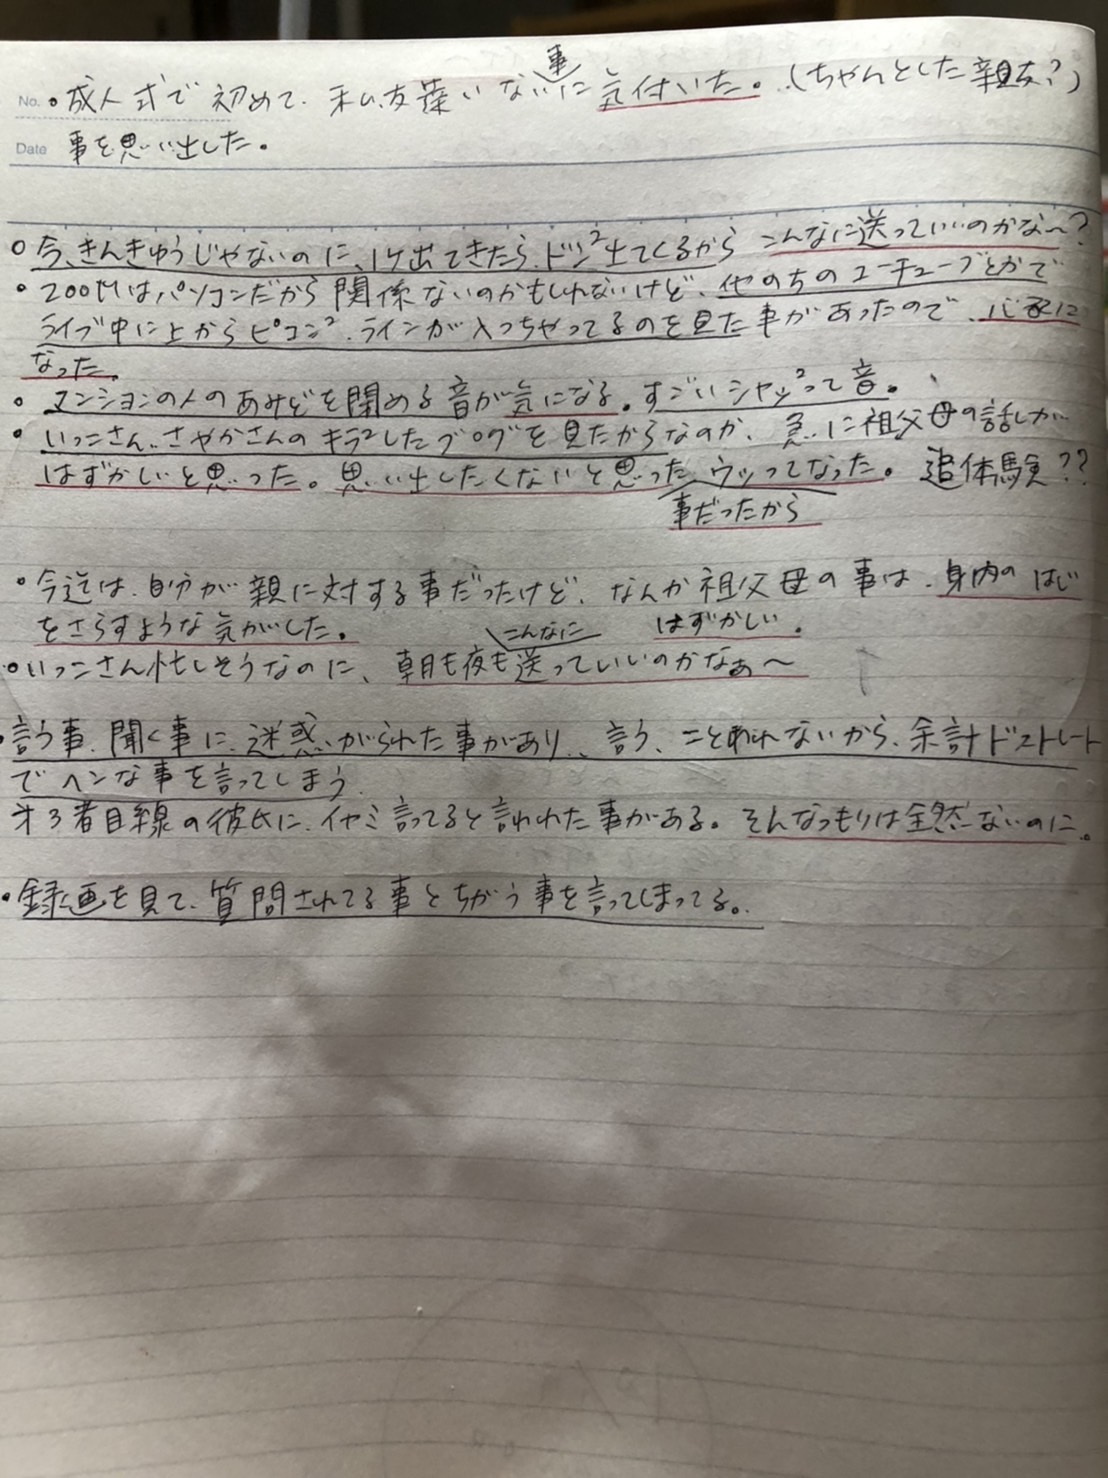 No. ・成人式で初めて、私、友達いない事に気付いた。(ちゃんとした親友?)
Date 事を思い出した。
○今、きんきゅうじゃないのに、1ケ出てきたら、ドン²出てくるから こんなに送っていいのかな〜?
・ZOOMはパソコンだから関係ないのかもしれないけど、他のちのユーチューブとかで
ライブ中に上からピコン²、ラインが入っちゃってるのを見た事があったので、心配に
なった。
・マンションの人のあみどを閉める音が気になる。すごいシャッ²って音。
・いっこさん、さやかさんのキラ²したブログを見たからなのか、急に祖父母の話しが
はずかしいと思った。思い出したくないと思った事だったから ウッってなった。追体験??
・今迄は、自分が親に対する事だったけど、なんか祖父母の事は、身内のはじ
をさらすような気がした。 はずかしい。
・いっこさん忙しそうなのに、朝も夜もこんなに送っていいのかなぁ〜
・言う事、聞く事に、迷惑がられた事があり、言う、ことわれないから、余計ドストレート
でヘンな事を言ってしまう。
才3者目線の彼氏に、イヤミ言ってると言われた事がある。そんなつもりは全然ないのに。
・録画を見て、質問されてる事とちがう事を言ってしまってる。